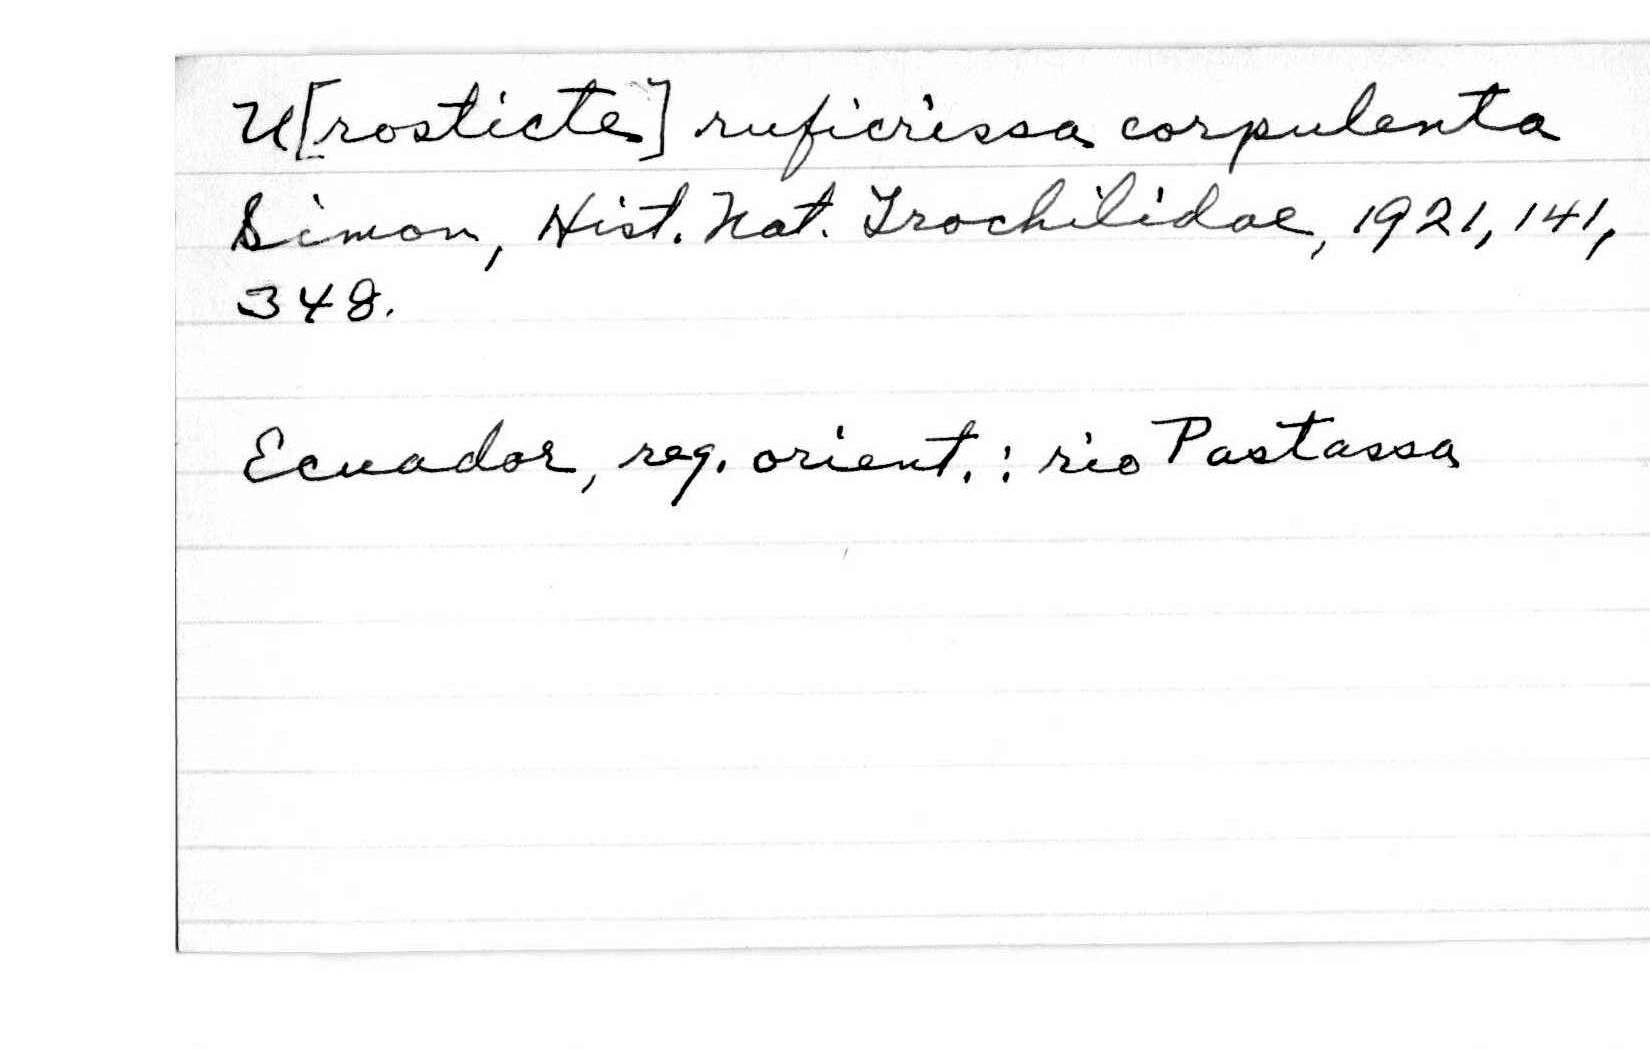 U[rosticte] ruficrissa corpulenta
Simon, Hist. Nat. Trochilidae, 1921, 141,
348.
Ecuador, reg. orient.: rio Pastassa